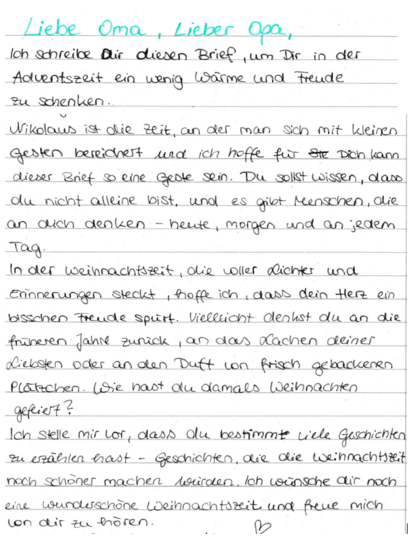 Liebe Oma, Lieber Opa,
Ich schreibe Dir diesen Brief, um Dir in der
Adventszeit ein wenig Wärme und Freude
zu schenken.
Nikolaus ist die Zeit, an der man sich mit kleinen
Gesten bereichert und ich hoffe für Dich kann
dieser Brief so eine Geste sein. Du sollst wissen, dass
du nicht alleine bist, und es gibt Menschen, die
an dich denken – heute, morgen und an jedem
Tag.
In der Weihnachtszeit, die voller Lichter und
Erinnerungen steckt, hoffe ich, dass dein Herz ein
bisschen Freude spürt. Vielleicht denkst du an die
früheren Jahre zurück, an das Lachen deiner
Liebsten oder an den Duft von frisch gebackenen
Plätzchen. Wie hast du damals Weihnachten
gefeiert?
Ich stelle mir vor, dass du bestimmt viele Geschichten
zu erzählen hast – Geschichten, die die Weihnachtszeit
noch schöner machen würden. Ich wünsche dir noch
eine wunderschöne Weihnachtszeit und freue mich
von dir zu hören.